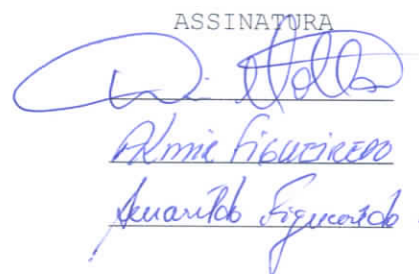 ASSINATURA
Almir Figueiredo
Amarildo Figueiredo